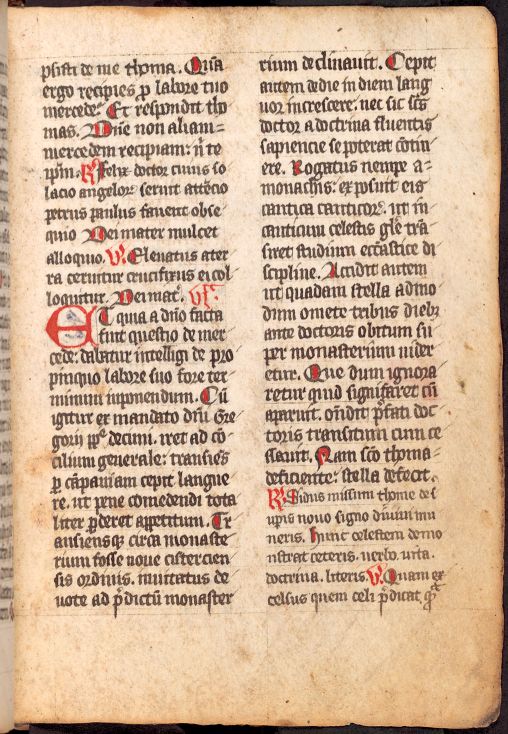 psisti de me thoma. Quā
ergo recipies p labore tuo
mercedē. Et respondit tho
mas. Dñe non aliam
mercedem recipiam: ñ te
ipm̄. R Felix doctor cuius so
lacio angelor seruit attēcio
petrus paulus fauent obse
quio Dei mater mulcet
alloquio. V. Eleuatus a ter
ra cernitur crucifixus ei col
loquitur. Dei mat̄.
ET quia a dño facta
fuit questio de mer
cede: dabatur intelligi de pro
pinquo labore suo fore ter
minum imponendum. Cū
igitur ex mandato dñi Gre
gorii ppe decimi. iret ad cō
cilium generale: transiēs
p cāpaniam cepit langue
re. ut pene comedendi tota
liter pderet appetitum. Tr
ansiensq circa monaste
rium fosse noue cistercien
sis ordinis. inuitatus de
uote ad pdictū monaster
rium declinauit. Cepit
autem de die in diem lang
uor increscere: nec sic scs
doctor a doctrina fluentis
sapiencie se poterat cōtin
ere. Rogatus nempe a
monachis: exposuit eis
cantica canticor. ut in
canticum celestis glē trā
siret studium eccastice di
scipline. Accidit autem
ut quadam stella admo
dum omete tribus diebz
ante doctoris obitum su
per monasterium uider
etur. Que dum ignora
retur quid significaret cū
aparuit. oñdit pfati doc
toris transitum cum ce
ssauit. Nam sco thoma
deficiente: stella defecit.
R Sidus missum thome de s
upis nouo signo diuini mu
neris. hunc celestem demo
nstrat ceteris. uerbo. uita.
doctrina. literis. V. Quam ex
celsus quem celi pdicat